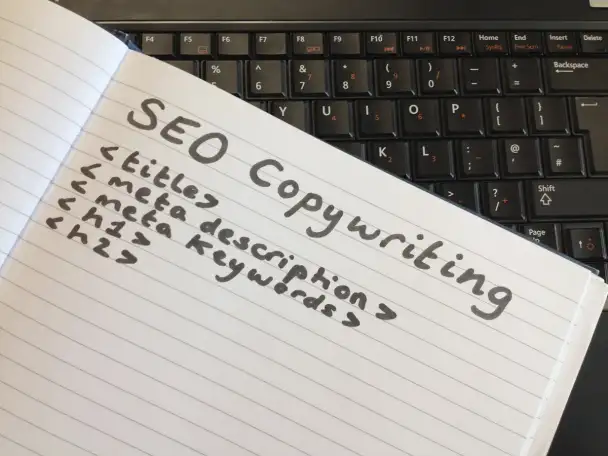 F4 F5 F6 F7 F8 F9 F10 F11 F12 Home End Insert Delete
SysRq Pause
% 5 ^ 6 & 7 7 * 8 8 ( 9 9 ) 0 / _ - + = Backspace
Y U 4 I 5 O 6 P * { [ } ]
K 2 L 3 : ; @ ' ~ #
> ? / + Shift
Page
SEO Copywriting
<title>
<meta description>
<meta keywords>
<h1>
<h2>